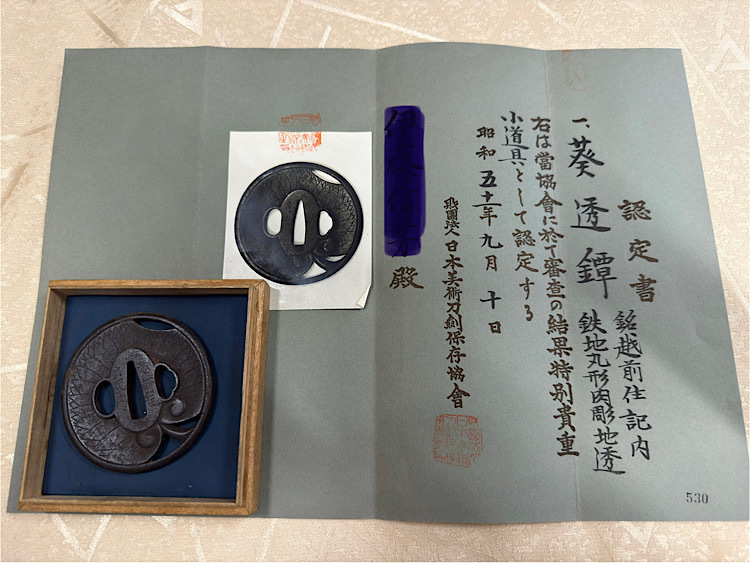 認定書
一、葵透鐔 銘越前住記内
鉄地丸形肉彫地透
右は當協會に於て審査の結果特別貴重
小道具として認定する
昭和五十一年九月十日
殿
財團法人日本美術刀劍保存協會
530